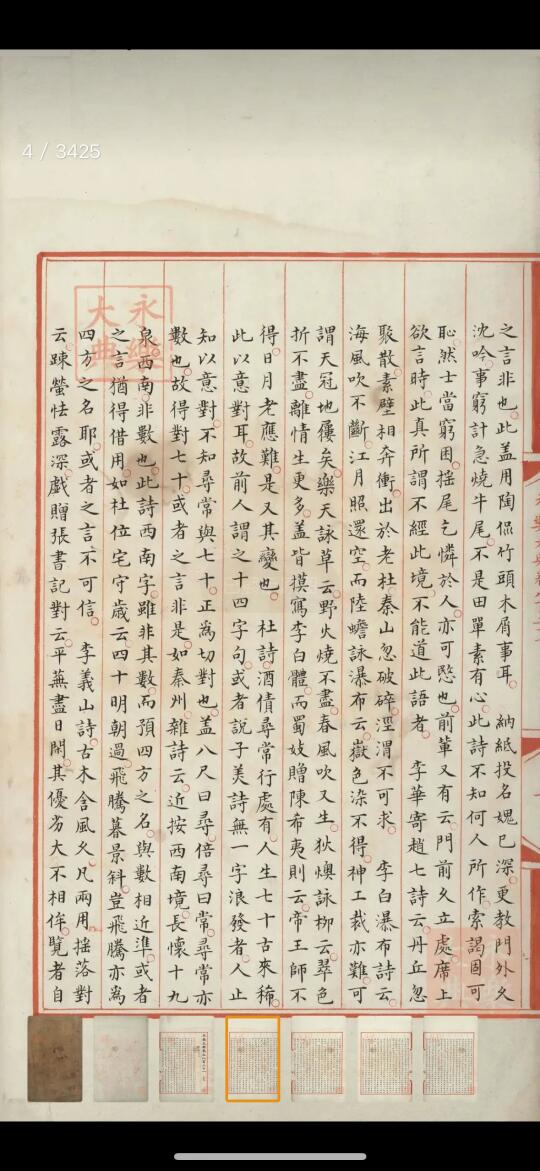 4 / 3425
永樂
大典
之言非也此盖用陶侃竹頭木屑事耳　納紙投名媿已深更教門外久
沈吟事窮計急燒牛尾不是田單素有心此詩不知何人所作索謁固可
恥然士當窮困揺尾乞憐於人亦可愍也前輩又有云門前久立處席上
欲言時此真所謂不經此境不能道此語者　李華寄趙七詩云丹丘忽
聚散素壁相奔衝出於老杜秦山忽破碎涇渭不可求　李白瀑布詩云
海風吹不斷江月照還空而陸蟾詠瀑布云嶽色染不得神工裁亦難可
謂天冠地屨矣樂天詠草云野火燒不盡春風吹又生狄燠詠柳云翠色
折不盡離情生更多盖皆摸寫李白體而蜀妓贈陳希夷則云帝王師不
得日月老應難是又其變也　杜詩酒債尋常行處有人生七十古來稀
此以意對耳故前人謂之十四字句或者說子美詩無一字浪發者人止
知以意對不知尋常與七十正為切對也盖八尺曰尋倍尋曰常尋常亦
數也故得對七十或者之言非是如秦州雜詩云近按西南境長懷十九
泉西南非數也此詩西南字雖非其數而預四方之名與數相近準或者
之言猶得借用如杜位宅守歲云四十明朝過飛騰暮景斜豈飛騰亦為
四方之名耶或者之言不可信　李義山詩古木含風久凡兩用揺落對
云踈螢怯露深戲贈張書記對云平蕪盡日閑其優劣大不相侔覽者自